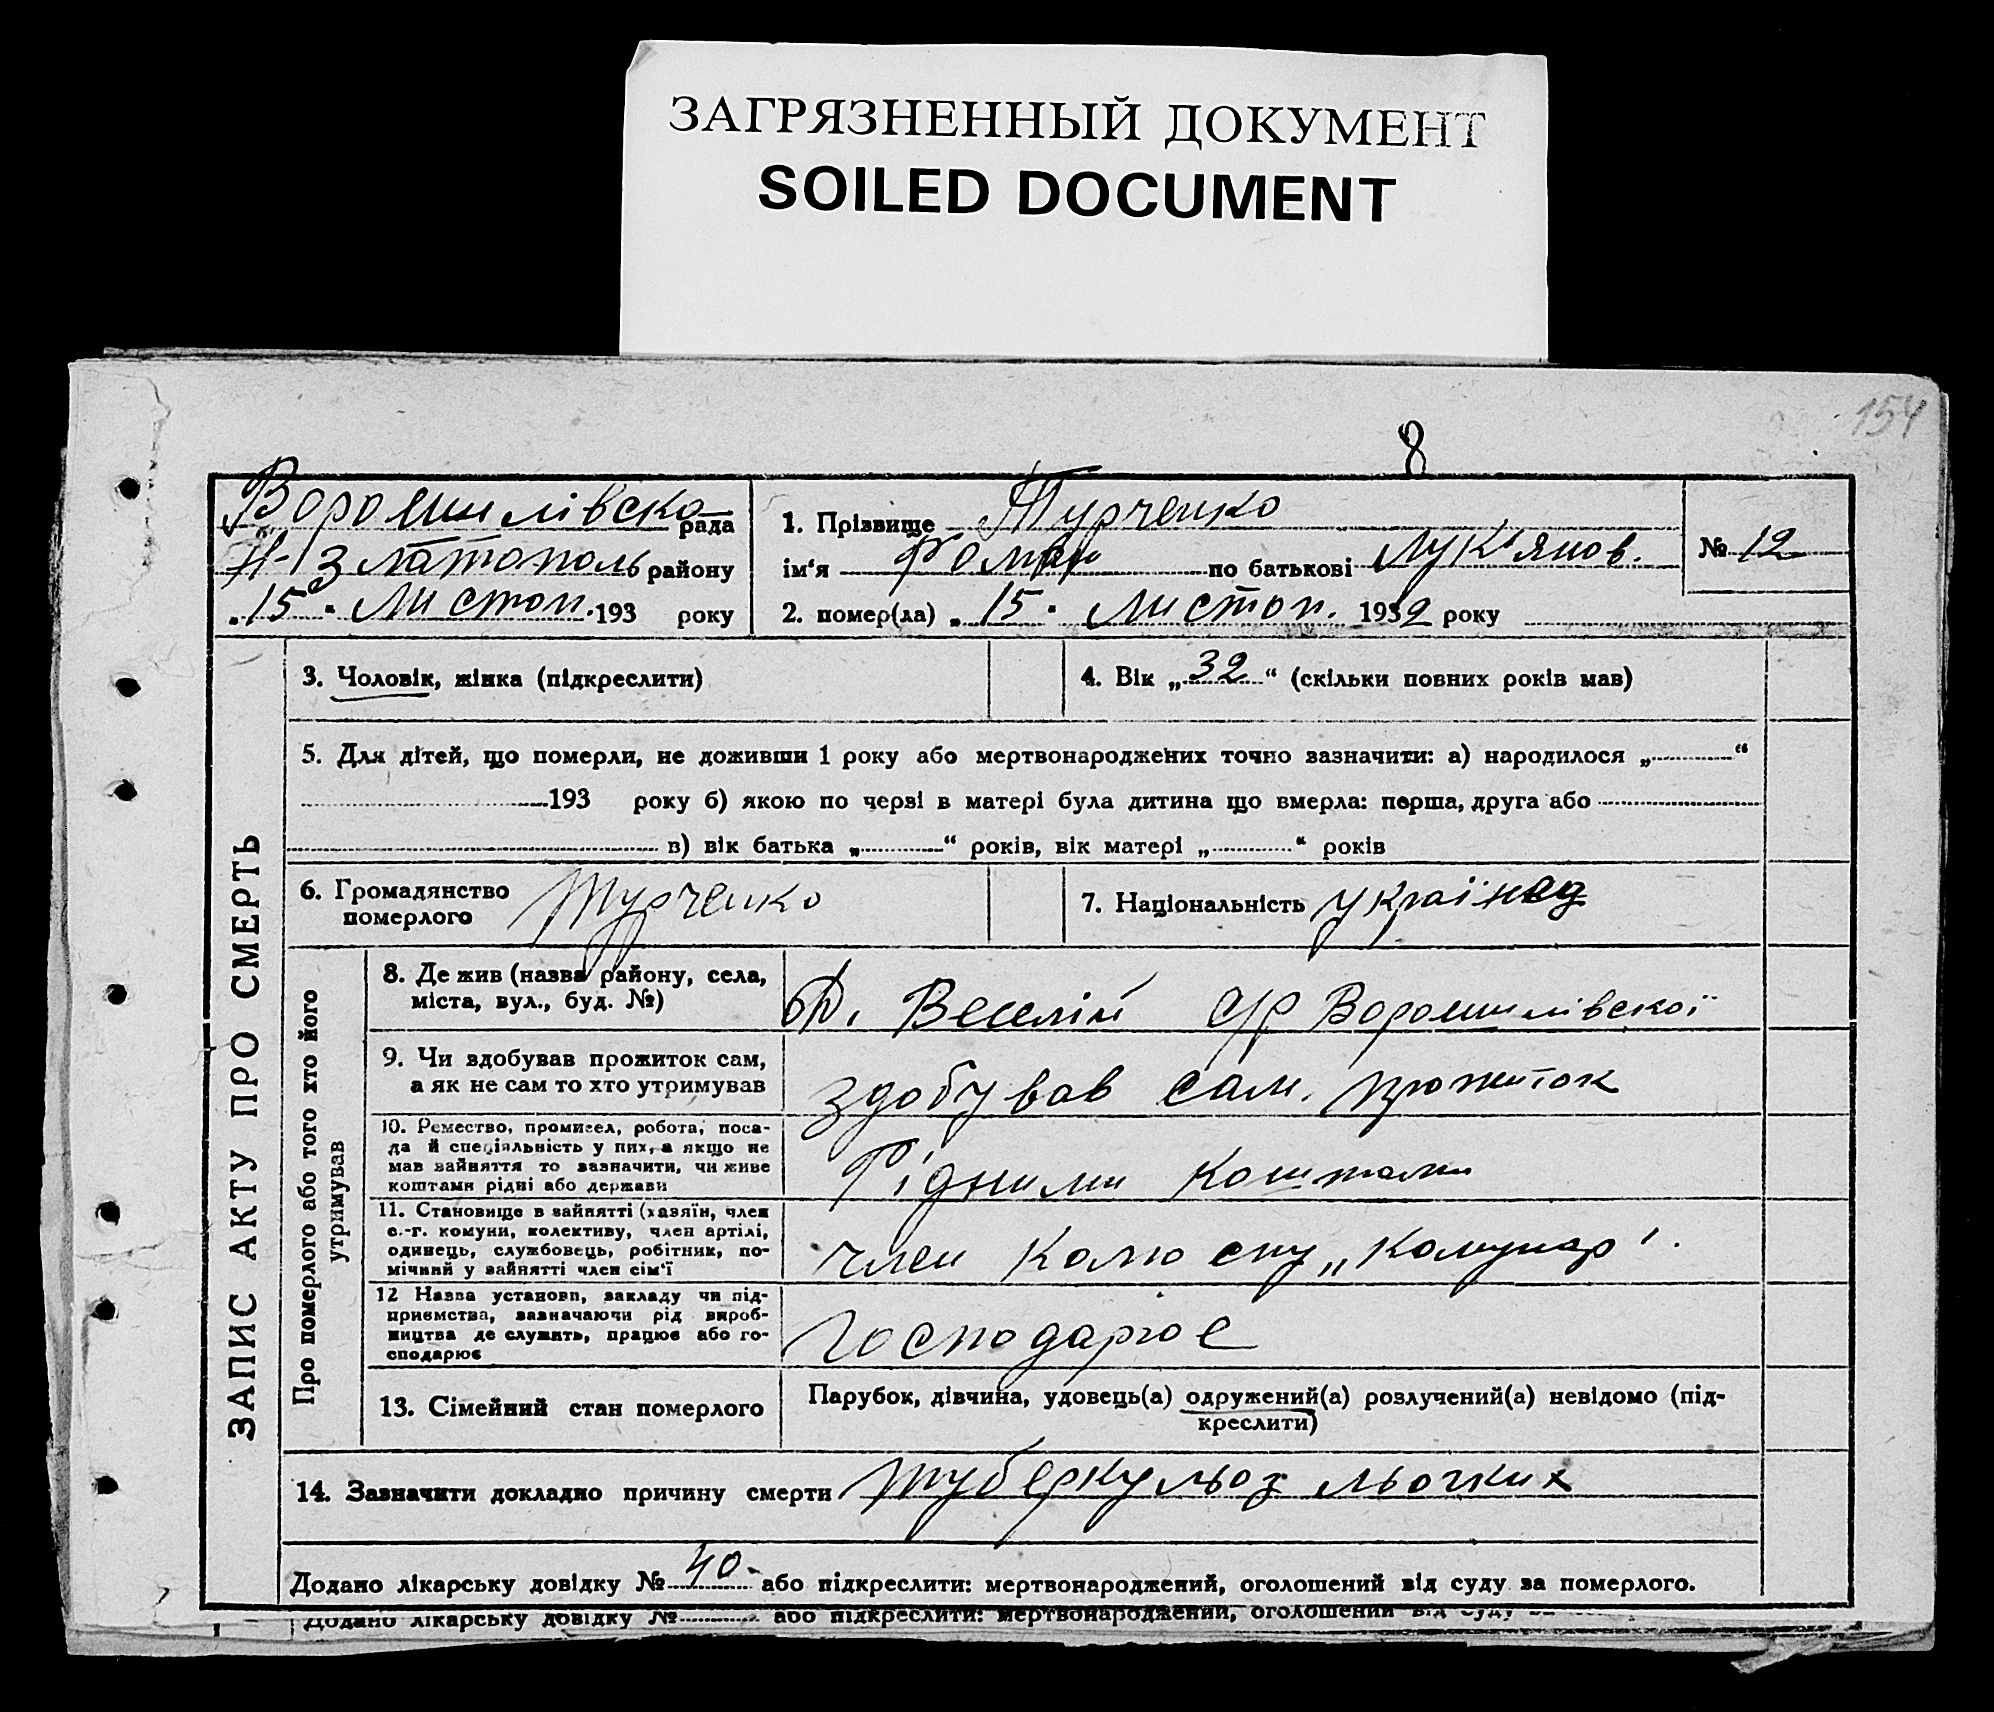 ЗАГРЯЗНЕННЫЙ ДОКУМЕНТ
SOILED DOCUMENT
154
8
Ворошилівска рада
Н-Златополь району
„15" Листоп. 193 року
1. Прізвище Турченко
ім'я Роман по батькові Лук'янов.
2. помер(ла) „15" Листоп. 1932 року
№ 12
ЗАПИС АКТУ ПРО СМЕРТЬ
3. Чоловік, жінка (підкреслити)
4. Вік „32" (скільки повних років мав)
5. Для дітей, що померли, не доживши 1 року або мертвонароджених точно зазначити: а) народилося „ "
193 року б) якою по черві в матері була дитина що вмерла: перша, друга або
в) вік батька „ " років, вік матері „ " років
6. Громадянство
померлого Турченко
7. Національність
Про померлого або того хто його
утримував
8. Де жив (назва району, села,
міста, вул., буд. №)
Веселій с/р Ворошилівскої
9. Чи вдобував прожиток сам,
а як не сам то хто утримував
здобував сам. прожиток
10. Ремество, промисел, робота, поса-
да й спеціяльність у них, а якщо не
мав вайняття то зазначити, чи живе
коштами рідні або держави
Рідними коштами
11. Становище в вайнятті (хазяїн, член
с.-г. комуни, колективу, член артілі,
одинець, службовець, робітник, по-
мічний у вайнятті член сім'ї
член „Комунар"
12 Назва установи, закладу чи під-
приємства, зазначаючи рід вироб-
ництва де служить, працює або го-
сподарює
Господарює
13. Сімейний стан померлого
Парубок, дівчина, удовець(а) одружений(а) розлучений(а) невідомо (під-
креслити)
14. Зазначити докладно причину смерти туберкульоз льогких
Додано лікарську довідку № 40 або підкреслити: мертвонароджений, оголошений від суду за померлого.
Додано лікарську довідку № або підкреслити: мертвонароджений, оголошений від суду